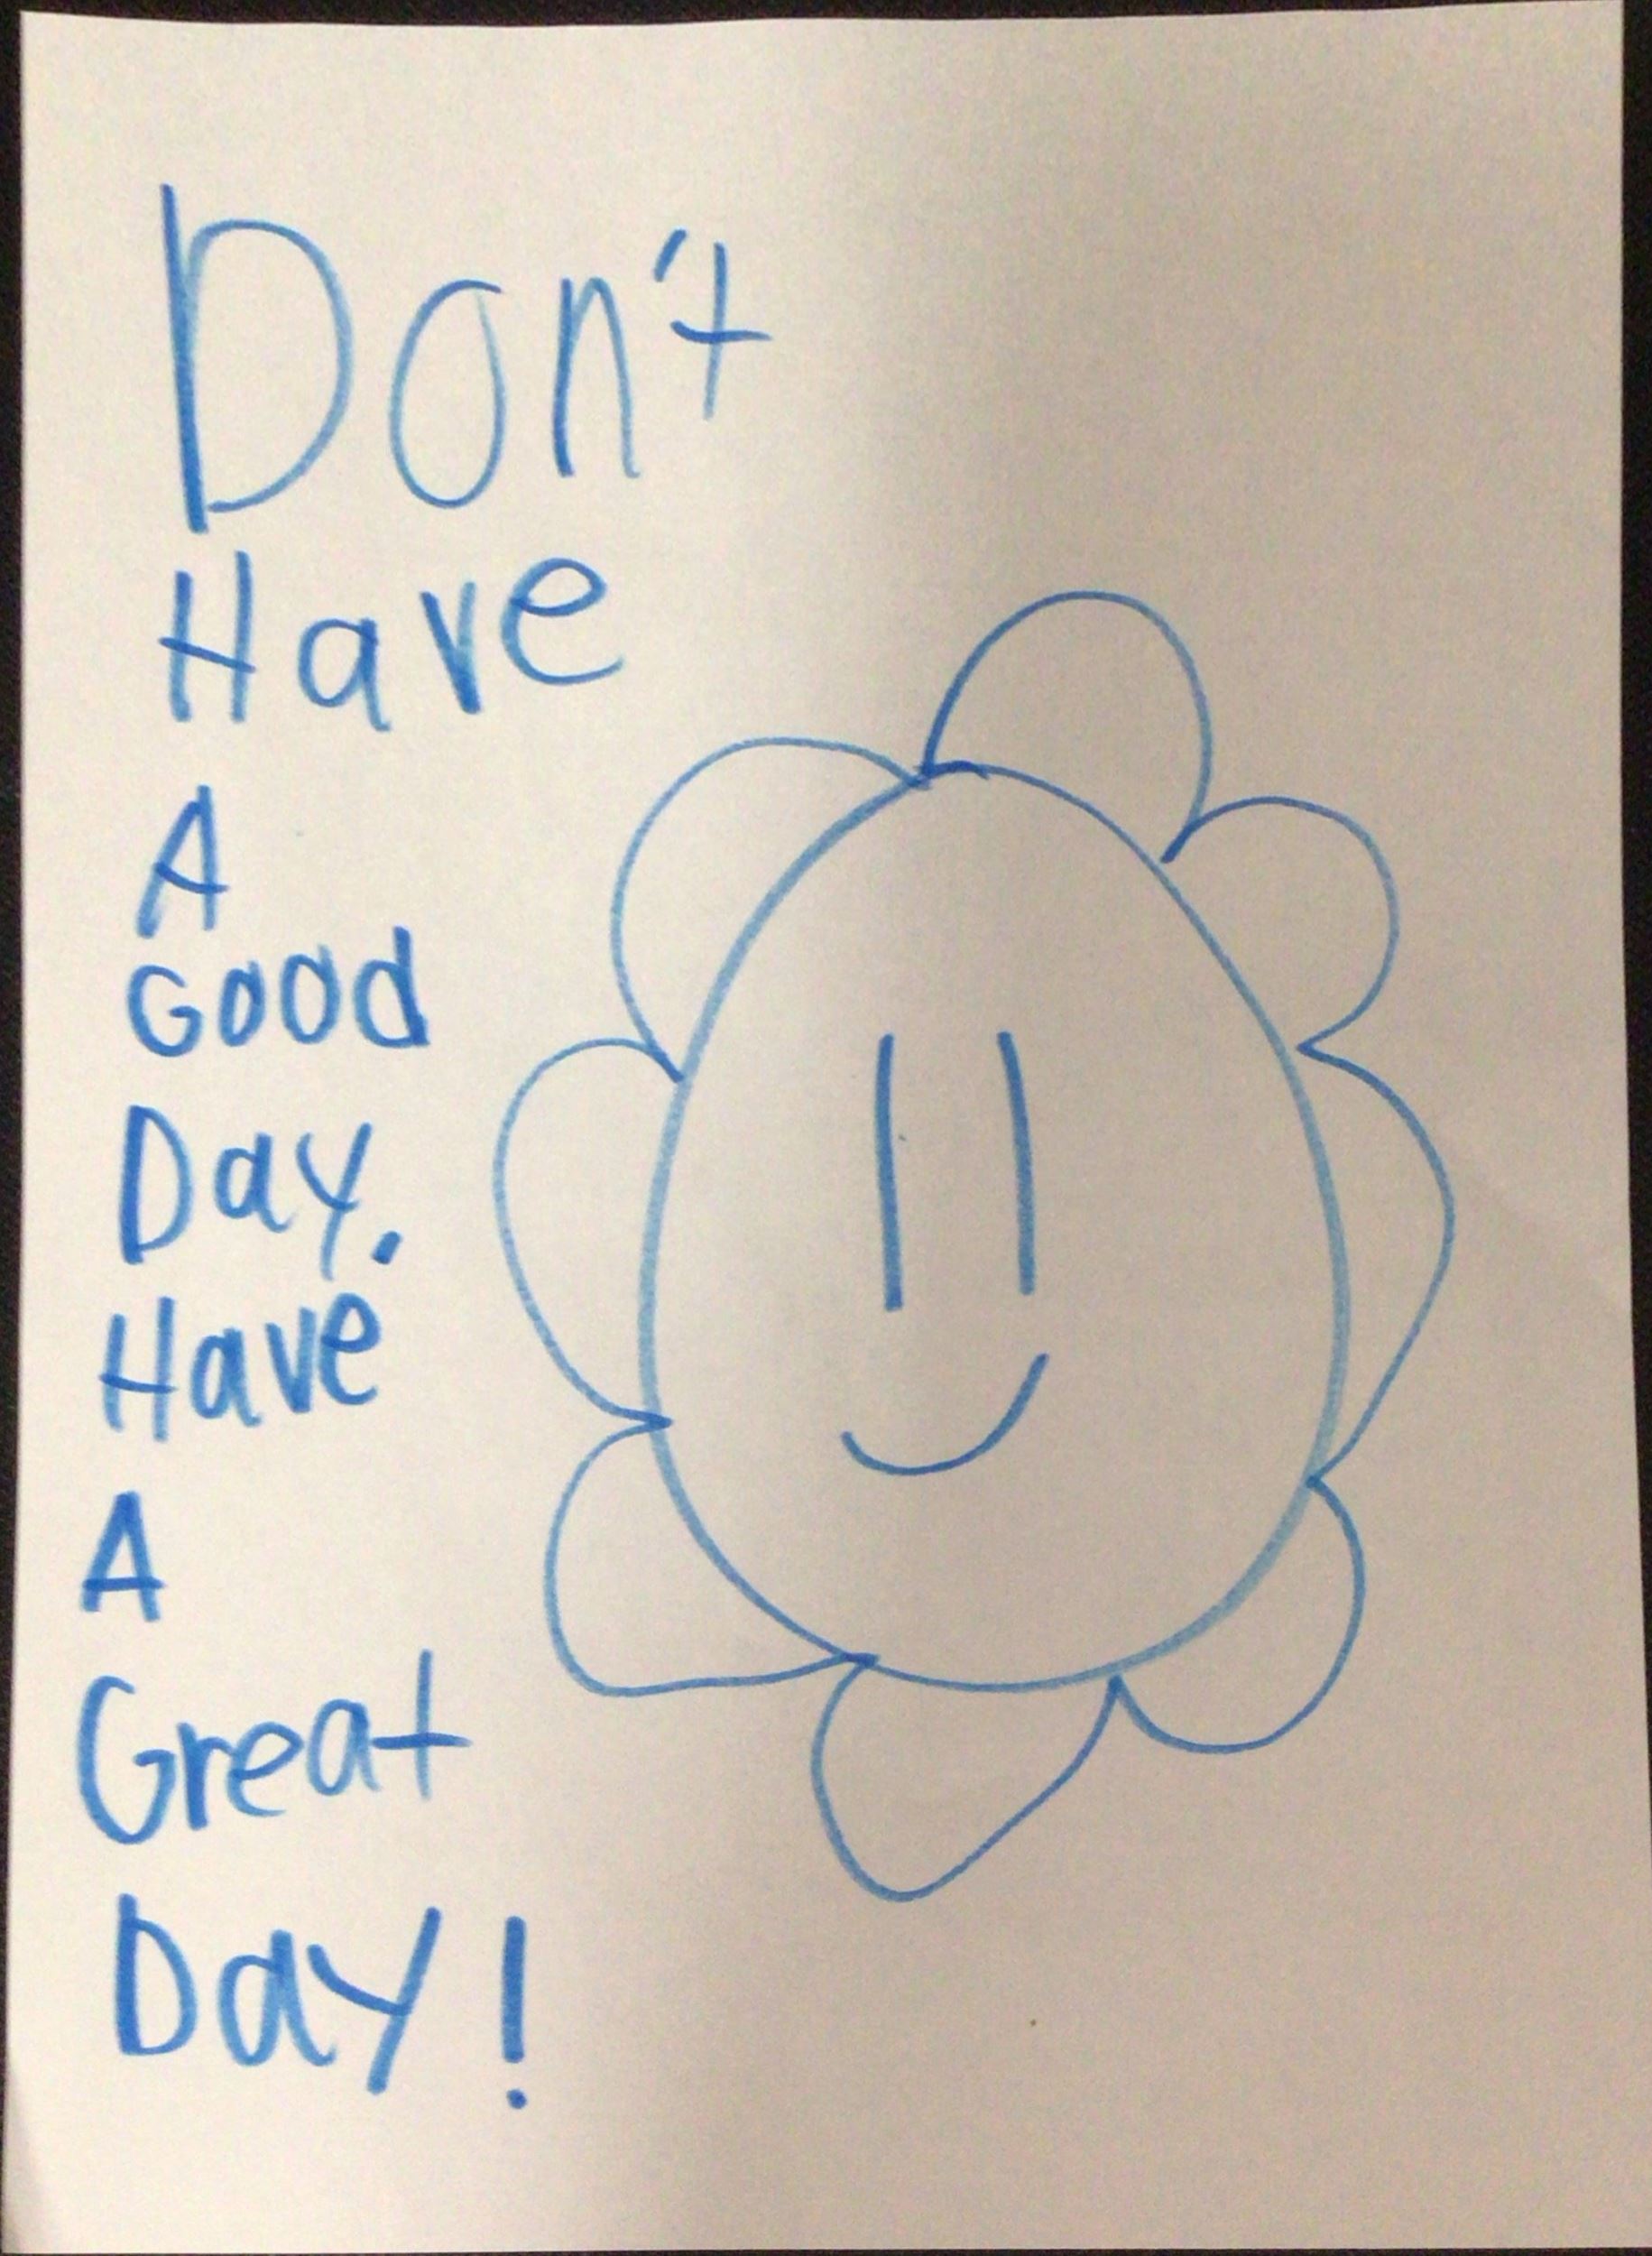 Don't
Have
A
Good
Day.
Have
A
Great
Day!